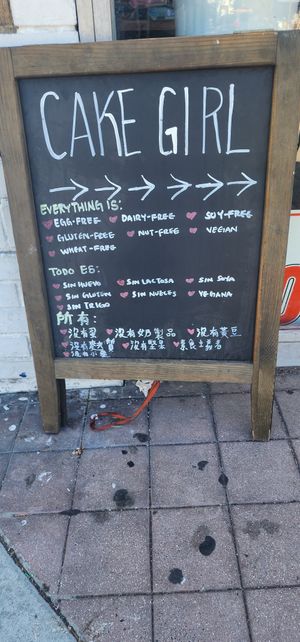 CAKE GIRL
EVERYTHING IS:
EGG-FREE DAIRY-FREE SOY-FREE
GLUTEN-FREE NUT-FREE VEGAN
WHEAT-FREE
TODO ES:
SIN HUEVO SIN LACTOSA SIN SOYA
SIN GLUTEN SIN NUECES VEGANA
SIN TRIGO
所有:
沒有蛋 沒有奶製品 沒有黃豆
沒有麩質 沒有堅果 素食主義者
沒有小麥